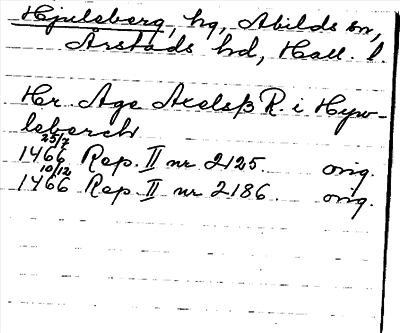 Hjulsberg, hg, Abilds sn,
Årstads hd, Hall. l.
Hr Age Axelsß R. i Hyw-
lsberch
25/7
1466 Rep. II nr 2125. orig.
10/12
1466 Rep. II nr 2186. orig.